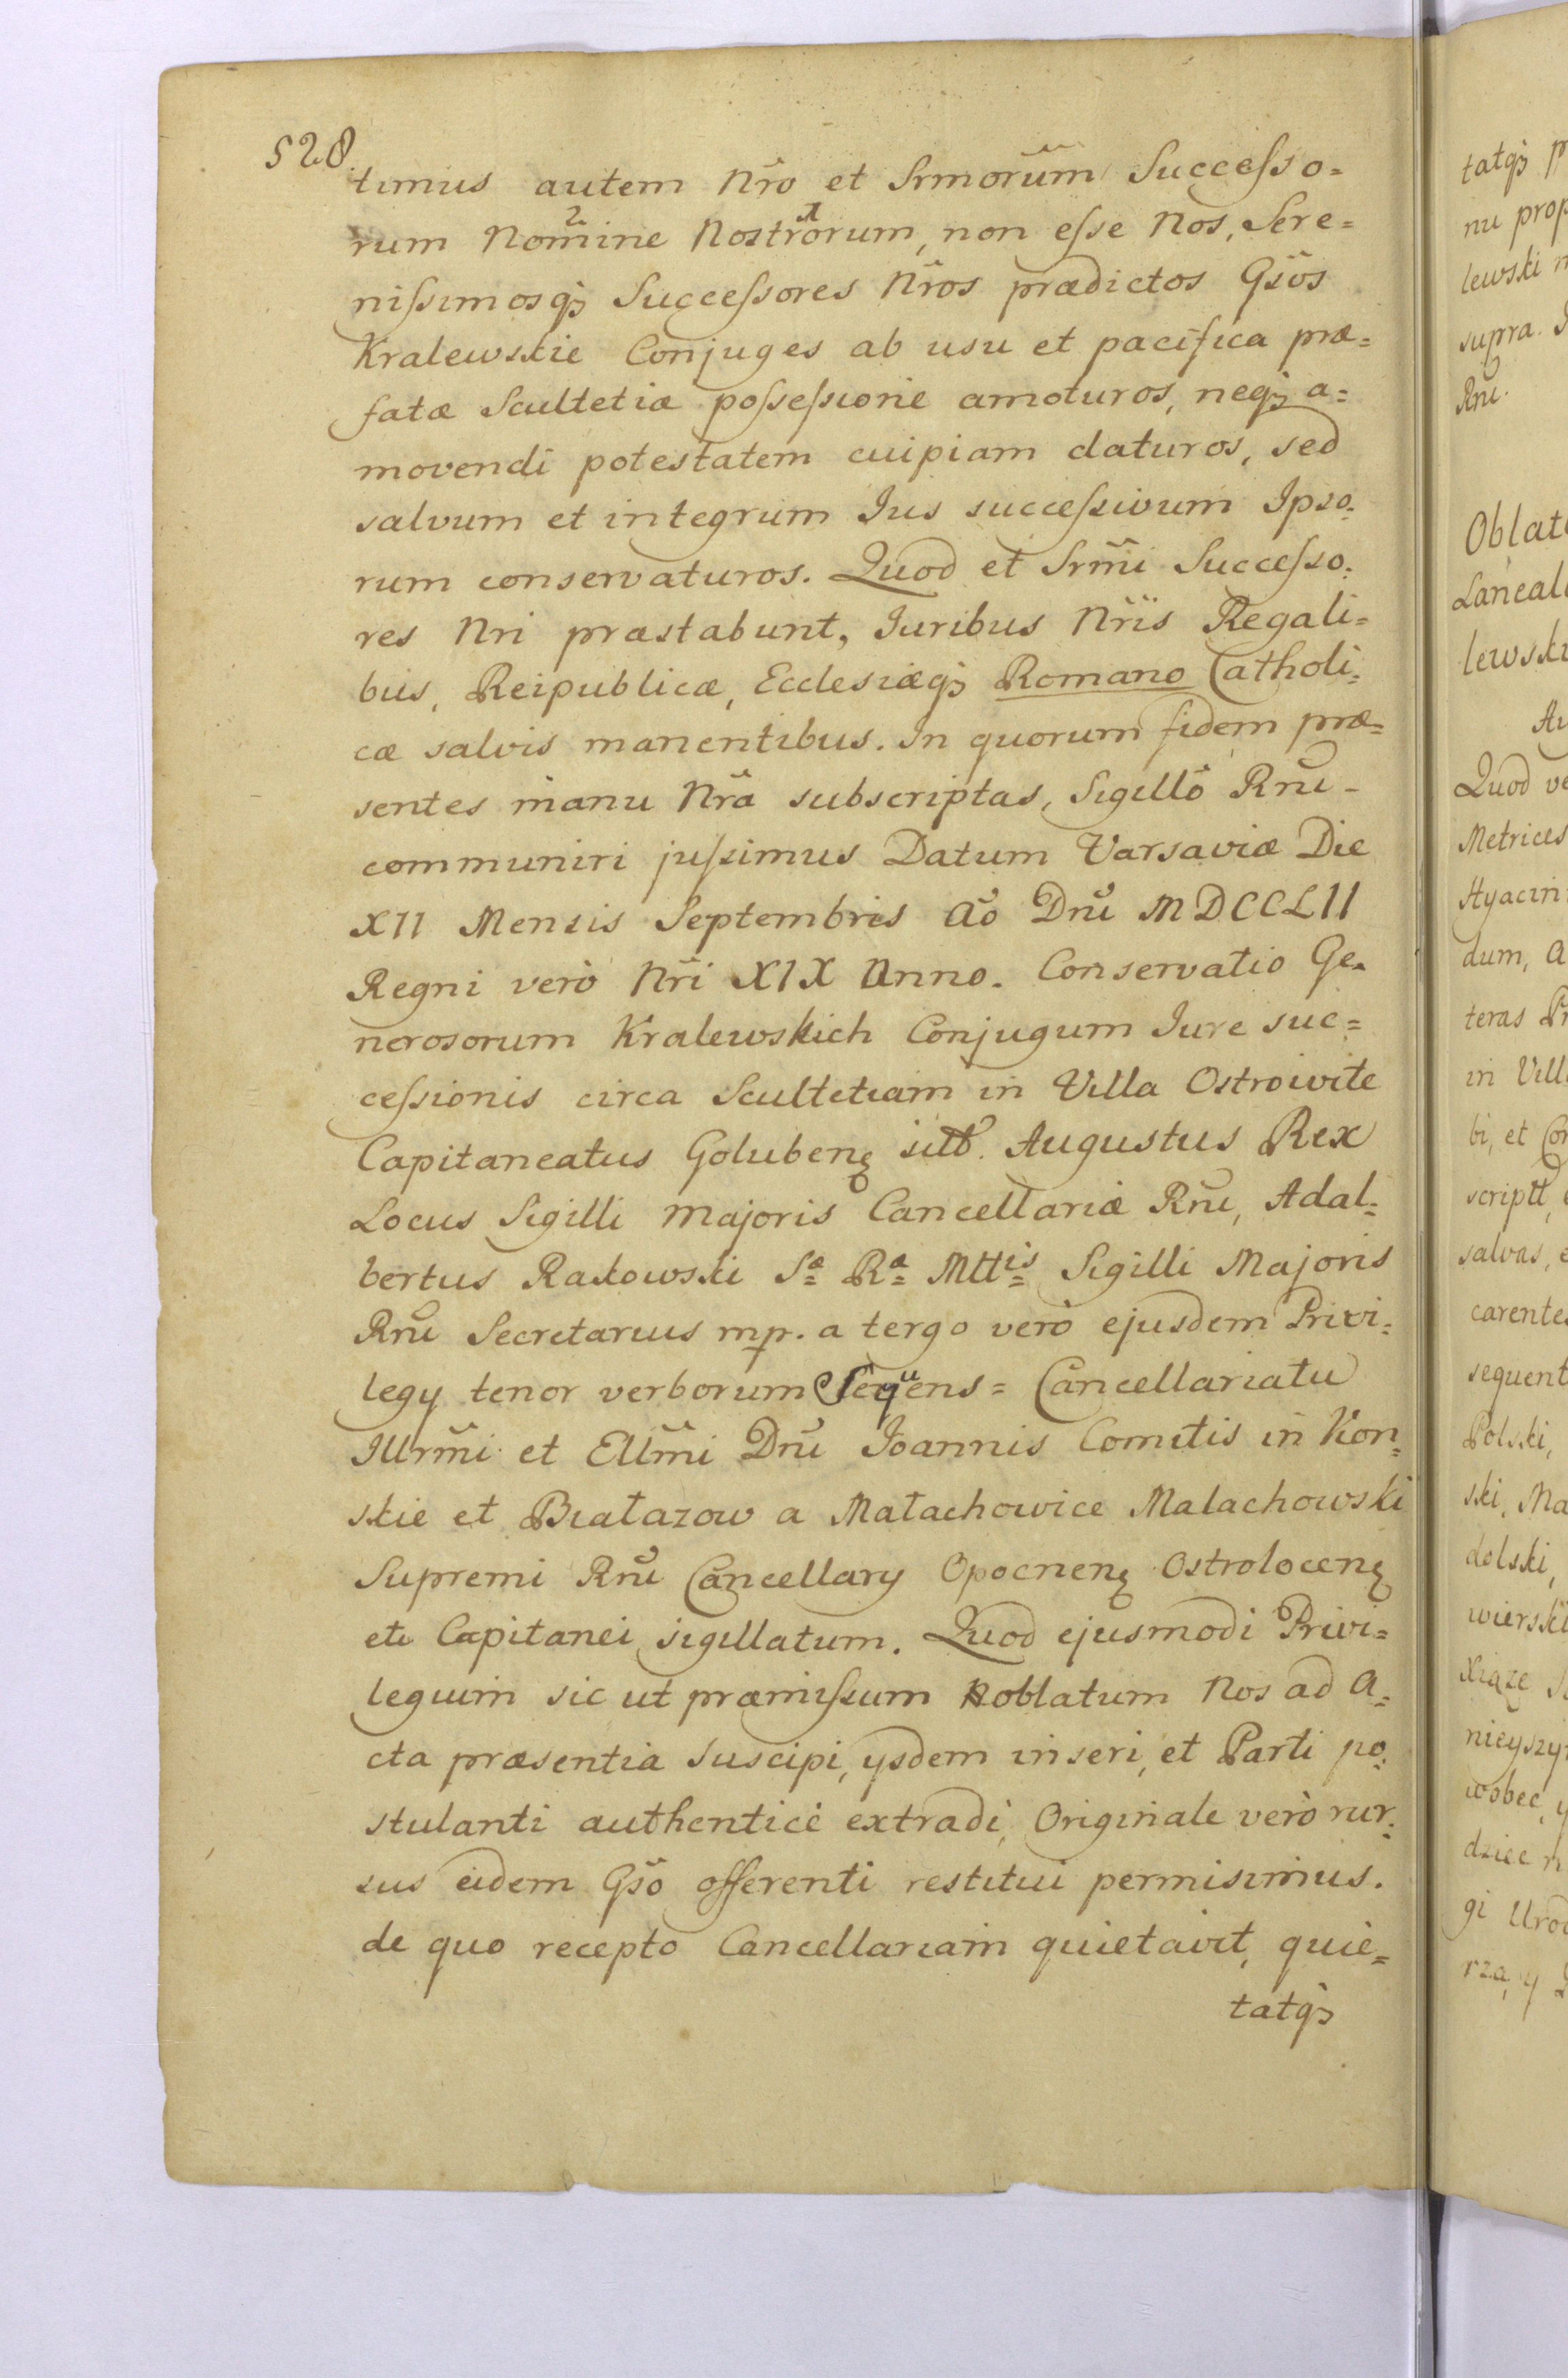 528
timus autem Nro et Srmorum Successo=
rum Nomine Nostrorum, non esse Nos, Sere=
nissimosq; Successores Nros prædictos Gsos
Kralewskie Conjuges ab usu et pacifica præ=
fatæ Scultetiæ possessione amoturos, neq; a=
movendi potestatem cuipiam daturos, sed
salvum et integrum Jus successivum Ipso=
rum conservaturos. Quod et Srmi Successo=
res Nri præstabunt, Juribus Nris Regali=
bus, Reipublicæ, Ecclesiæq; Romano Catholi=
cæ salvis manentibus. In quorum fidem præ=
sentes manu Nra subscriptas, Sigillo Rni
communiri jussimus Datum Varsaviæ Die
XII Mensis Septembris Ao Dni MDCCLII
Regni verò Nri XIX Anno. Conservatio Ge=
nerosorum Kralewskich Conjugum Jure suc=
cessionis circa Scultetiam in Villa Ostrowite
Capitaneatus Golubenꝫ sitt. Augustus Rex
Locus Sigilli Majoris Cancellariæ Rni, Adal=
bertus Rakowski Sæ Ræ Mttis Sigilli Majoris
Rni Secretarius mp. a tergo verò ejusdem Privi=
legy tenor verborum Sequens = Cancellariatu
Illrmi et Ellmi Dni Joannis Comitis in Kon=
skie et Białazow a Małachowice Malachowski
Supremi Rni Cancellary Opocnenꝫ Ostrolocenꝫ
etc Capitanei sigillatum. Quod ejusmodi Privi=
legium sic ut præmissum oblatum Nos ad A=
cta præsentia suscipi, ysdem inseri, et Parti po=
stulanti authenticè extradi, Originale verò rur=
sus eidem Gso offerenti restitui permisimus.
de quo recepto Cancellariam quietavit, quie=
tatq;
tatq; p
nu prop
lewski
supra.
Rni.
Oblat
Lancal
lewski
Quod ve
Metrices
Hyacin
dum, a
teras Pr
in Vill
bi, et Con
scriptt,
salvas, e
carente
sequent
Polski,
ski, Ma
dolski,
wierski
Xiąze
wobec, y
dziec n
gi Urod
rza, y